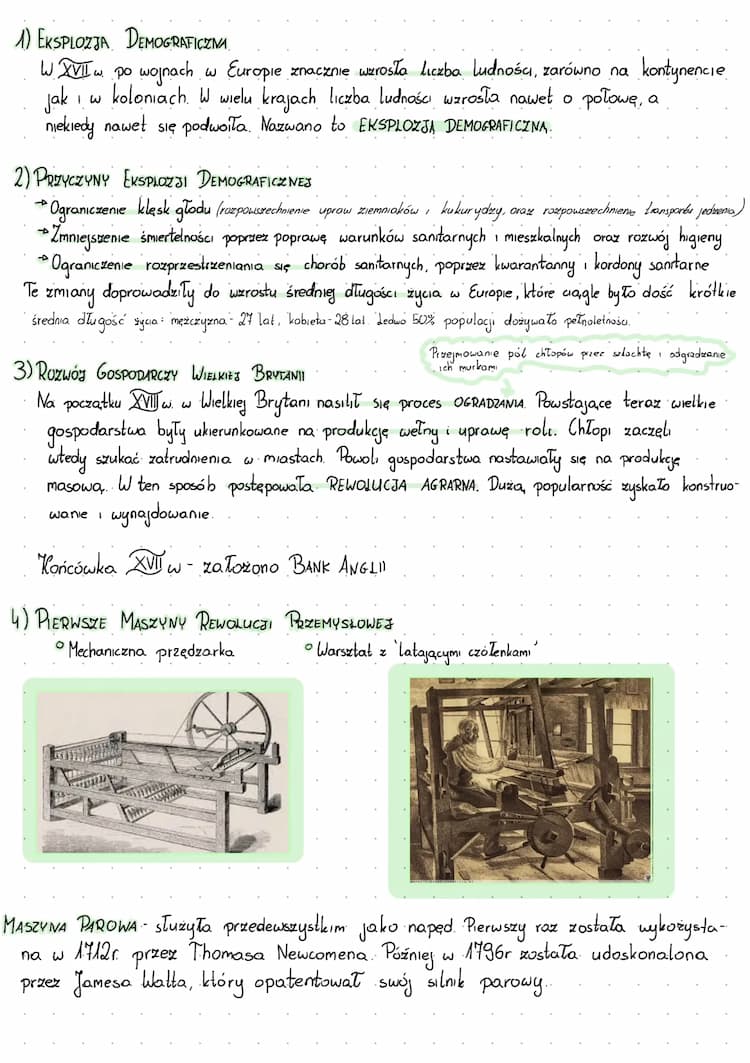 1) EKSPLOZJA DEMOGRAFICZNA
W XVII w. po wojnach w Europie znacznie wzrosła liczba ludności, zarówno na kontynencie
jak i w koloniach. W wielu krajach liczba ludności wzrosła nawet o połowę, a
niekiedy nawet się podwoiła. Nazwano to EKSPLOZJĄ DEMOGRAFICZNĄ.
2) PRZYCZYNY EKSPLOZJI DEMOGRAFICZNEJ
→ Ograniczenie klęsk głodu (rozpowszechnienie upraw ziemniaków i kukurydzy, oraz rozpowszechnienie transportu jedzenia)
→ Zmniejszenie śmiertelności poprzez poprawę warunków sanitarnych i mieszkalnych oraz rozwój higieny
→ Ograniczenie rozprzestrzeniania się chorób sanitarnych, poprzez kwarantanny i kordony sanitarne
Te zmiany doprowadziły do wzrostu średniej długości życia w Europie, które ciągle było dość krótkie
średnia długość życia: mężczyzna - 27 lat, kobieta - 28 lat. Ledwo 50% populacji dożywało pełnoletności.
Przejmowanie pól chłopów przez szlachtę i odgradzanie
ich murkami
3) ROZWÓJ GOSPODARCZY WIELKIEJ BRYTANII
Na początku XVII w. w Wielkiej Brytani nasilił się proces OGRADZANIA. Powstające teraz wielkie
gospodarstwa były ukierunkowane na produkcję wełny i uprawę roli. Chłopi zaczęli
wtedy szukać zatrudnienia w miastach. Powoli gospodarstwa nastawiały się na produkcję
masową. W ten sposób postępowała REWOLUCJA AGRARNA. Dużą popularność zyskało konstruo-
wanie i wynajdowanie.
Końcówka XVII w - założono BANK ANGLII
4) PIERWSZE MASZYNY REWOLUCJI PRZEMYSŁOWEJ
° Mechaniczna przędzarka
° Warsztat z 'latającymi czółenkami'
MASZYNA PAROWA - służyła przedewszystkim jako napęd. Pierwszy raz została wykożysta-
na w 1712r. przez Thomasa Newcomena. Później w 1796r została udoskonalona
przez Jamesa Watta, który opatentował swój silnik parowy.